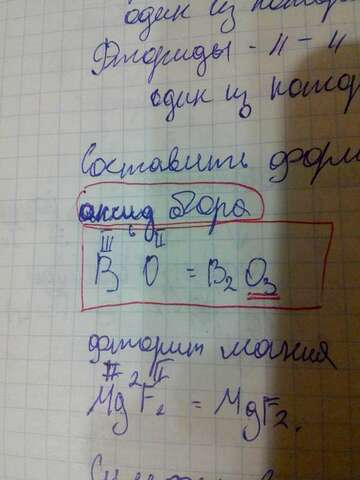 один из котор
Фториды - 11 - 11
один из котор
Составить форм
оксид бора
III 6 II
B O = B2 O3
фторит магния
II 2 I
Mg F2 = MgF2.